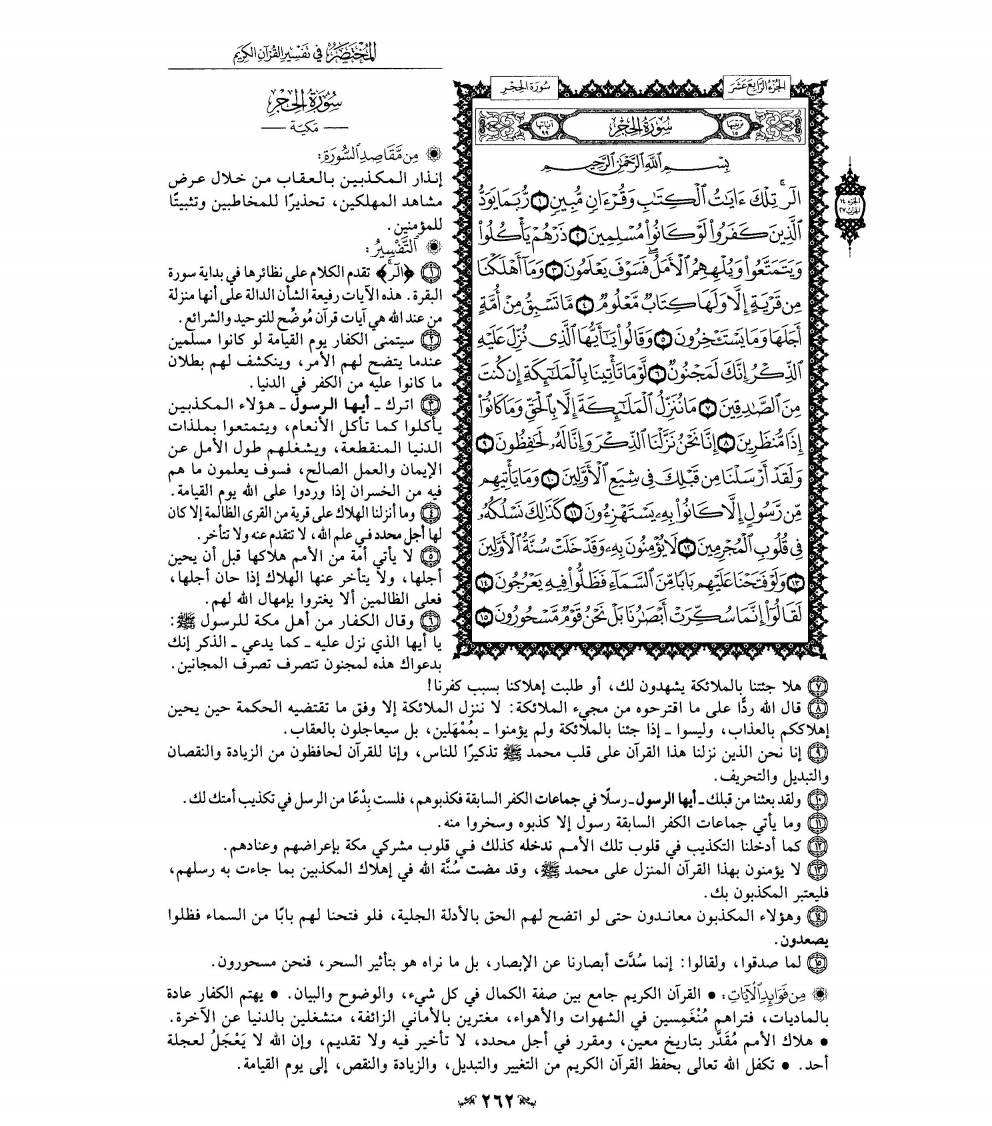 المختصر في تفسير القرآن الكريم
سورة الحجر
مكية
من مقاصد السورة:
إنذار المكذبين بالعقاب من خلال عرض
مشاهد المهلكين، تحذيرًا للمخاطبين وتثبيتًا
للمؤمنين.
التفسير:
١ ﴿الٓر﴾ تقدم الكلام على نظائرها في بداية سورة
البقرة. هذه الآيات رفيعة الشأن الدالة على أنها منزلة
من عند الله هي آيات قرآن مُوضِّح للتوحيد والشرائع.
٢ سيتمنى الكفار يوم القيامة لو كانوا مسلمين
عندما يتضح لهم الأمر، وينكشف لهم بطلان
ما كانوا عليه من الكفر في الدنيا.
٣ اترك ـ أيها الرسول ـ هؤلاء المكذبين
يأكلوا كما تأكل الأنعام، ويتمتعوا بملذات
الدنيا المنقطعة، ويشغلهم طول الأمل عن
الإيمان والعمل الصالح، فسوف يعلمون ما هم
فيه من الخسران إذا وردوا على الله يوم القيامة.
٤ وما أنزلنا الهلاك على قرية من القرى الظالمة إلا كان
لها أجل محدد في علم الله، لا تتقدم عنه ولا تتأخر.
٥ لا يأتي أمة من الأمم هلاكها قبل أن يحين
أجلها، ولا يتأخر عنها الهلاك إذا حان أجلها،
فعلى الظالمين ألا يغتروا بإمهال الله لهم.
٦ وقال الكفار من أهل مكة للرسول ﷺ:
يا أيها الذي نزل عليه ـ كما يدعي ـ الذكر إنك
بدعواك هذه لمجنون تتصرف تصرف المجانين.
الجزء الرابع عشر
سورة الحجر
ترتيبها ١٥
سورة الحجر
آياتها ٩٩
بِسْمِ ٱللَّهِ ٱلرَّحْمَٰنِ ٱلرَّحِيمِ
الٓرۚ تِلْكَ ءَايَٰتُ ٱلْكِتَٰبِ وَقُرْءَانٍ مُّبِينٍ ١ رُّبَمَا يَوَدُّ
ٱلَّذِينَ كَفَرُوا۟ لَوْ كَانُوا۟ مُسْلِمِينَ ٢ ذَرْهُمْ يَأْكُلُوا۟
وَيَتَمَتَّعُوا۟ وَيُلْهِهِمُ ٱلْأَمَلُۖ فَسَوْفَ يَعْلَمُونَ ٣ وَمَآ أَهْلَكْنَا
مِن قَرْيَةٍ إِلَّا وَلَهَا كِتَابٌ مَّعْلُومٌ ٤ مَّا تَسْبِقُ مِنْ أُمَّةٍ
أَجَلَهَا وَمَا يَسْتَـْٔخِرُونَ ٥ وَقَالُوا۟ يَٰٓأَيُّهَا ٱلَّذِى نُزِّلَ عَلَيْهِ
ٱلذِّكْرُ إِنَّكَ لَمَجْنُونٌ ٦ لَّوْ مَا تَأْتِينَا بِٱلْمَلَٰٓئِكَةِ إِن كُنتَ
مِنَ ٱلصَّٰدِقِينَ ٧ مَا نُنَزِّلُ ٱلْمَلَٰٓئِكَةَ إِلَّا بِٱلْحَقِّ وَمَا كَانُوٓا۟
إِذًا مُّنظَرِينَ ٨ إِنَّا نَحْنُ نَزَّلْنَا ٱلذِّكْرَ وَإِنَّا لَهُۥ لَحَٰفِظُونَ ٩
وَلَقَدْ أَرْسَلْنَا مِن قَبْلِكَ فِى شِيَعِ ٱلْأَوَّلِينَ ١٠ وَمَا يَأْتِيهِم
مِّن رَّسُولٍ إِلَّا كَانُوا۟ بِهِۦ يَسْتَهْزِءُونَ ١١ كَذَٰلِكَ نَسْلُكُهُۥ
فِى قُلُوبِ ٱلْمُجْرِمِينَ ١٢ لَا يُؤْمِنُونَ بِهِۦ وَقَدْ خَلَتْ سُنَّةُ ٱلْأَوَّلِينَ
١٣ وَلَوْ فَتَحْنَا عَلَيْهِم بَابًا مِّنَ ٱلسَّمَآءِ فَظَلُّوا۟ فِيهِ يَعْرُجُونَ ١٤
لَقَالُوٓا۟ إِنَّمَا سُكِّرَتْ أَبْصَٰرُنَا بَلْ نَحْنُ قَوْمٌ مَّسْحُورُونَ ١٥
الجزء ١٤
الحزب ٢٧
٧ هلا جئتنا بالملائكة يشهدون لك، أو طلبت إهلاكنا بسبب كفرنا!
٨ قال الله ردًّا على ما اقترحوه من مجيء الملائكة: لا ننزل الملائكة إلا وفق ما تقتضيه الحكمة حين يحين
إهلاككم بالعذاب، وليسوا ـ إذا جئنا بالملائكة ولم يؤمنوا ـ بمُمْهَلين، بل سيعاجلون بالعقاب.
٩ إنا نحن الذين نزلنا هذا القرآن على قلب محمد ﷺ تذكيرًا للناس، وإنا للقرآن لحافظون من الزيادة والنقصان
والتبديل والتحريف.
١٠ ولقد بعثنا من قبلك ـ أيها الرسول ـ رسلًا في جماعات الكفر السابقة فكذبوهم، فلست بِدْعًا من الرسل في تكذيب أمتك لك.
١١ وما يأتي جماعات الكفر السابقة رسول إلا كذبوه وسخروا منه.
١٢ كما أدخلنا التكذيب في قلوب تلك الأمم ندخله كذلك في قلوب مشركي مكة بإعراضهم وعنادهم.
١٣ لا يؤمنون بهذا القرآن المنزل على محمد ﷺ، وقد مضت سُنَّة الله في إهلاك المكذبين بما جاءت به رسلهم،
فليعتبر المكذبون بك.
١٤ وهؤلاء المكذبون معاندون حتى لو اتضح لهم الحق بالأدلة الجلية، فلو فتحنا لهم بابًا من السماء فظلوا
يصعدون.
١٥ لما صدقوا، ولقالوا: إنما سُدَّت أبصارنا عن الإبصار، بل ما نراه هو بتأثير السحر، فنحن مسحورون.
من فوائد الآيات: • القرآن الكريم جامع بين صفة الكمال في كل شيء، والوضوح والبيان. • يهتم الكفار عادة
بالماديات، فتراهم مُنْغَمِسين في الشهوات والأهواء، مغترين بالأماني الزائفة، منشغلين بالدنيا عن الآخرة.
• هلاك الأمم مُقَدَّر بتاريخ معين، ومقرر في أجل محدد، لا تأخير فيه ولا تقديم، وإن الله لا يَعْجَلُ لعجلة
أحد. • تكفل الله تعالى بحفظ القرآن الكريم من التغيير والتبديل، والزيادة والنقص، إلى يوم القيامة.
٢٦٢